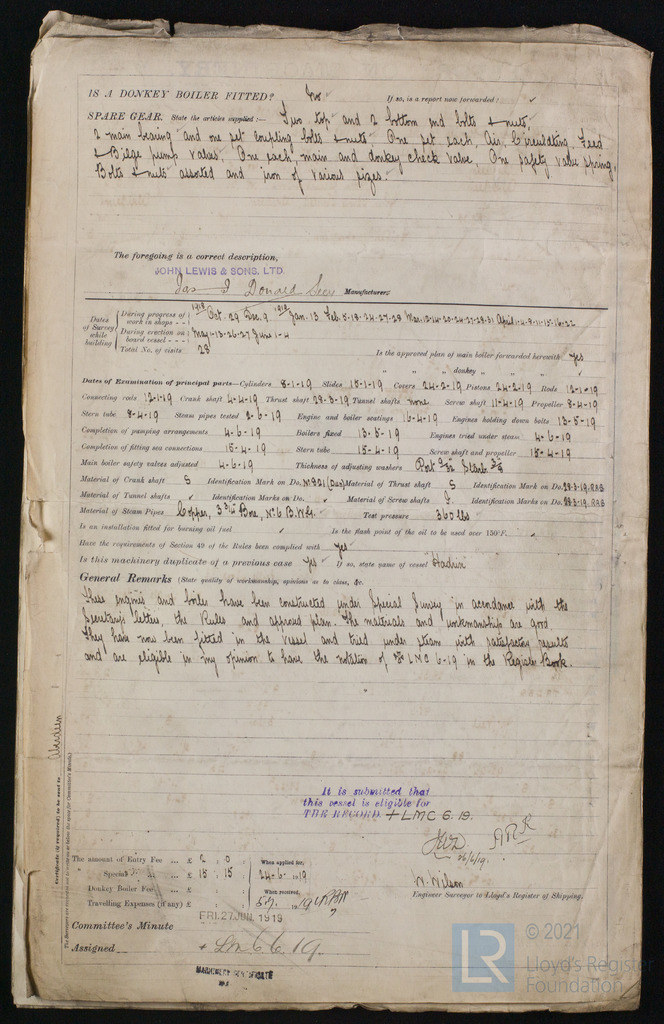 IS A DONKEY BOILER FITTED? No. If so, is a report now forwarded? ✓
SPARE GEAR. State the articles supplied:— Two top and 2 bottom end bolts & nuts,
2 main bearing and one set coupling bolts & nuts. One set each, Air, Circulating, Feed
& Bilge pump valves, One each, main and donkey check valve, One safety valve spring,
Bolts & nuts assorted and iron of various sizes.
The foregoing is a correct description,
JOHN LEWIS & SONS. LTD.
Donald Manufacturers.
Dates of Survey while building
During progress of work in shops - - 1918 Oct. 29 Dec. 9 1919 Jan. 13 Feb. 5-18-24-27-28 Mar. 12-14-20-24-27-28-31 April 1-4-8-11-15-16-22
During erection on board vessel - - - May 1-13-26-27 June 1-4
Total No. of visits 28
Is the approved plan of main boiler forwarded herewith Yes
" " " donkey " " " ✓
Dates of Examination of principal parts—Cylinders 8-1-19 Slides 13-1-19 Covers 24-2-19 Pistons 24-2-19 Rods 12-1-19
Connecting rods 12-1-19 Crank shaft 4-4-19 Thrust shaft 29-3-19 Tunnel shafts none Screw shaft 11-4-19 Propeller 8-4-19
Stern tube 8-4-19 Steam pipes tested 2-6-19 Engine and boiler seatings 16-4-19 Engines holding down bolts 13-5-19
Completion of pumping arrangements 4-6-19 Boilers fixed 13-5-19 Engines tried under steam 4-6-19
Completion of fitting sea connections 15-4-19 Stern tube 15-4-19 Screw shaft and propeller 15-4-19
Main boiler safety valves adjusted 4-6-19 Thickness of adjusting washers Port Starb
Material of Crank shaft S Identification Mark on Do. Material of Thrust shaft S Identification Mark on Do. 29-3-19. RAB
Material of Tunnel shafts ✓ Identification Marks on Do. ✓ Material of Screw shafts Identification Marks on Do. 29-3-19. RAB
Material of Steam Pipes Copper, Bore, No 6 B.W.G. Test pressure 360 lbs
Is an installation fitted for burning oil fuel ✓ Is the flash point of the oil to be used over 150°F. ✓
Have the requirements of Section 49 of the Rules been complied with Yes
Is this machinery duplicate of a previous case Yes If so, state name of vessel
General Remarks (State quality of workmanship, opinions as to class, &c.
These engines and boiler have been constructed under Special Survey in accordance with the
Secretary's letters, the Rules and approved plan. The materials and workmanship are good
They have now been fitted in the vessel and tried under steam with satisfactory results
and are eligible in my opinion to have the notation of + LMC 6-19 in the Register Book.
Aberdeen
It is submitted that
this vessel is eligible for
THE RECORD. + LMC 6.19.
26/6/19.
The amount of Entry Fee ... £ 2 : 0 : When applied for,
Special ... £ 15 : 15 24-6-1919
Donkey Boiler Fee ... £ When received,
Travelling Expenses (if any) £ 5.7.1919
W. Wilson
Engineer Surveyor to Lloyd's Register of Shipping.
Committee's Minute FRI. 27 JUN. 1919
Assigned + LMC 6.19.
MACHINERY CERTIFICATE
LR
© 2021
Lloyd's Register
Foundation